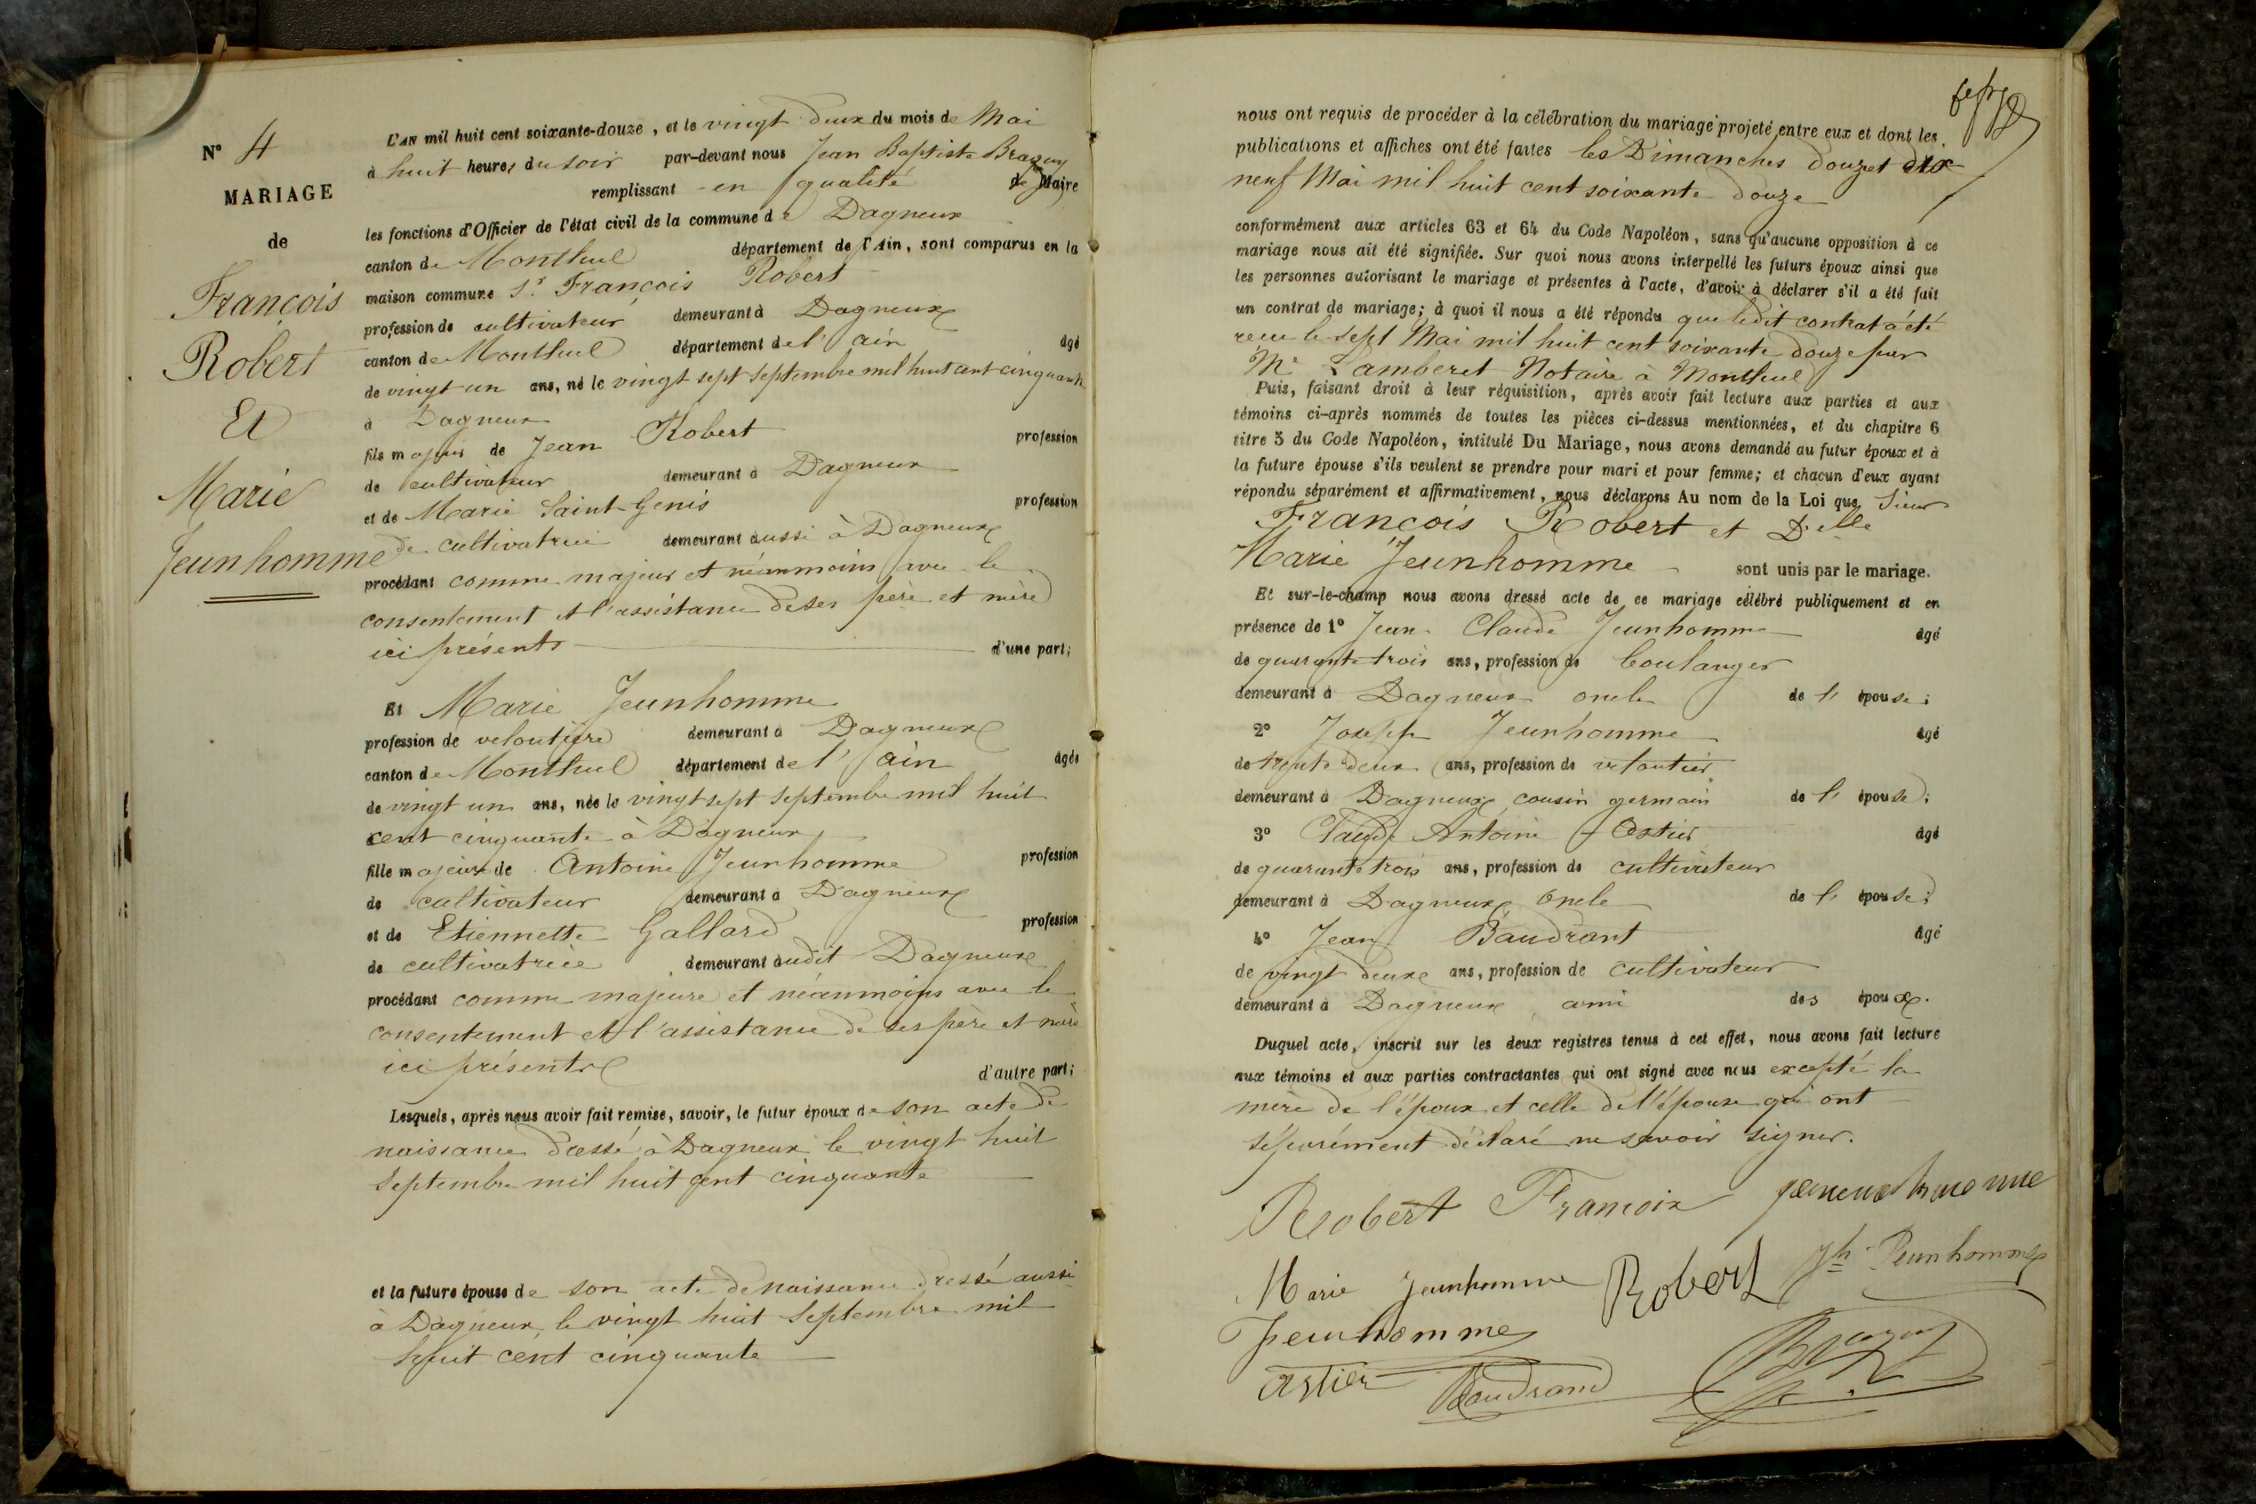 N° 4
MARIAGE
de
François
Robert
Et
Marie
Jeunhomme
L'AN mil huit cent soixante-douze, et le vingt deux du mois de Mai
à huit heures du soir par-devant nous Jean Baptiste
remplissant en qualité de Maire
les fonctions d'Officier de l'état civil de la commune de Dagneux
canton de Montluel département de l'Ain, sont comparus en la
maison commune Sr François Robert
profession de cultivateur demeurant à Dagneux
canton de Montluel département de l'ain âgé
de vingt un ans, né le vingt sept septembre mil huit cent cinquante
à Dagneux
fils majeur de Jean Robert profession
de cultivateur demeurant à Dagneux
et de Marie Saint-Genis profession
de cultivatrice demeurant aussi à Dagneux
procédant comme majeur et néanmoins avec le
consentement et l'assistance de ses père et mère
ici présents d'une part;
Et Marie Jeunhomme
profession de veloutière demeurant à Dagneux
canton de Montluel département de l'ain âgée
de vingt un ans, née le vingt sept septembre mil huit
cent cinquante à Dagneux
fille majeure de Antoine Jeunhomme profession
de cultivateur demeurant à Dagneux
et de Etiennette Gallard profession
de cultivatrice demeurant audit Dagneux
procédant comme majeure et néanmoins avec le
consentement et l'assistance de ses père et mère
ici présents d'autre part;
Lesquels, après nous avoir fait remise, savoir, le futur époux de son acte de
naissance dressé à Dagneux le vingt huit
septembre mil huit cent cinquante
et la future épouse de son acte de naissance dressé aussi
à Dagneux, le vingt huit septembre mil
huit cent cinquante
nous ont requis de procéder à la célébration du mariage projeté entre eux et dont les
publications et affiches ont été faites les Dimanches douze et dix
neuf Mai mil huit cent soixante douze
conformément aux articles 63 et 64 du Code Napoléon, sans qu'aucune opposition à ce
mariage nous ait été signifiée. Sur quoi nous avons interpellé les futurs époux ainsi que
les personnes autorisant le mariage et présentes à l'acte, d'avoir à déclarer s'il a été fait
un contrat de mariage; à quoi il nous a été répondu que ledit contrat a été
reçu le sept Mai mil huit cent soixante douze par
Me Lamberet Notaire à Montluel
Puis, faisant droit à leur réquisition, après avoir fait lecture aux parties et aux
témoins ci-après nommés de toutes les pièces ci-dessus mentionnées, et du chapitre 6
titre 5 du Code Napoléon, intitulé Du Mariage, nous avons demandé au futur époux et à
la future épouse s'ils veulent se prendre pour mari et pour femme; et chacun d'eux ayant
répondu séparément et affirmativement, nous déclarons Au nom de la Loi que Sieur
François Robert et Delle
Marie Jeunhomme sont unis par le mariage.
Et sur-le-champ nous avons dressé acte de ce mariage célébré publiquement et en
présence de 1° Jean Claude Jeunhomme âgé
de quarante trois ans, profession de boulanger
demeurant à Dagneux oncle de l' épouse;
2° Joseph Jeunhomme âgé
de trente deux ans, profession de veloutier
demeurant à Dagneux, cousin germain de l' épouse;
3° Claude Antoine Astier âgé
de quarante trois ans, profession de cultivateur
demeurant à Dagneux oncle de l' épouse;
4° Jean Baudrant âgé
de vingt deux ans, profession de cultivateur
demeurant à Dagneux ami des époux.
Duquel acte, inscrit sur les deux registres tenus à cet effet, nous avons fait lecture
aux témoins et aux parties contractantes qui ont signé avec nous excepté la
mère de l'époux et celle de l'épouse qui ont
séparément déclaré ne savoir signer.
Robert François
Marie Jeunhomme Robert Jh Jeunhomme
Jeunhomme
Astier Baudrand